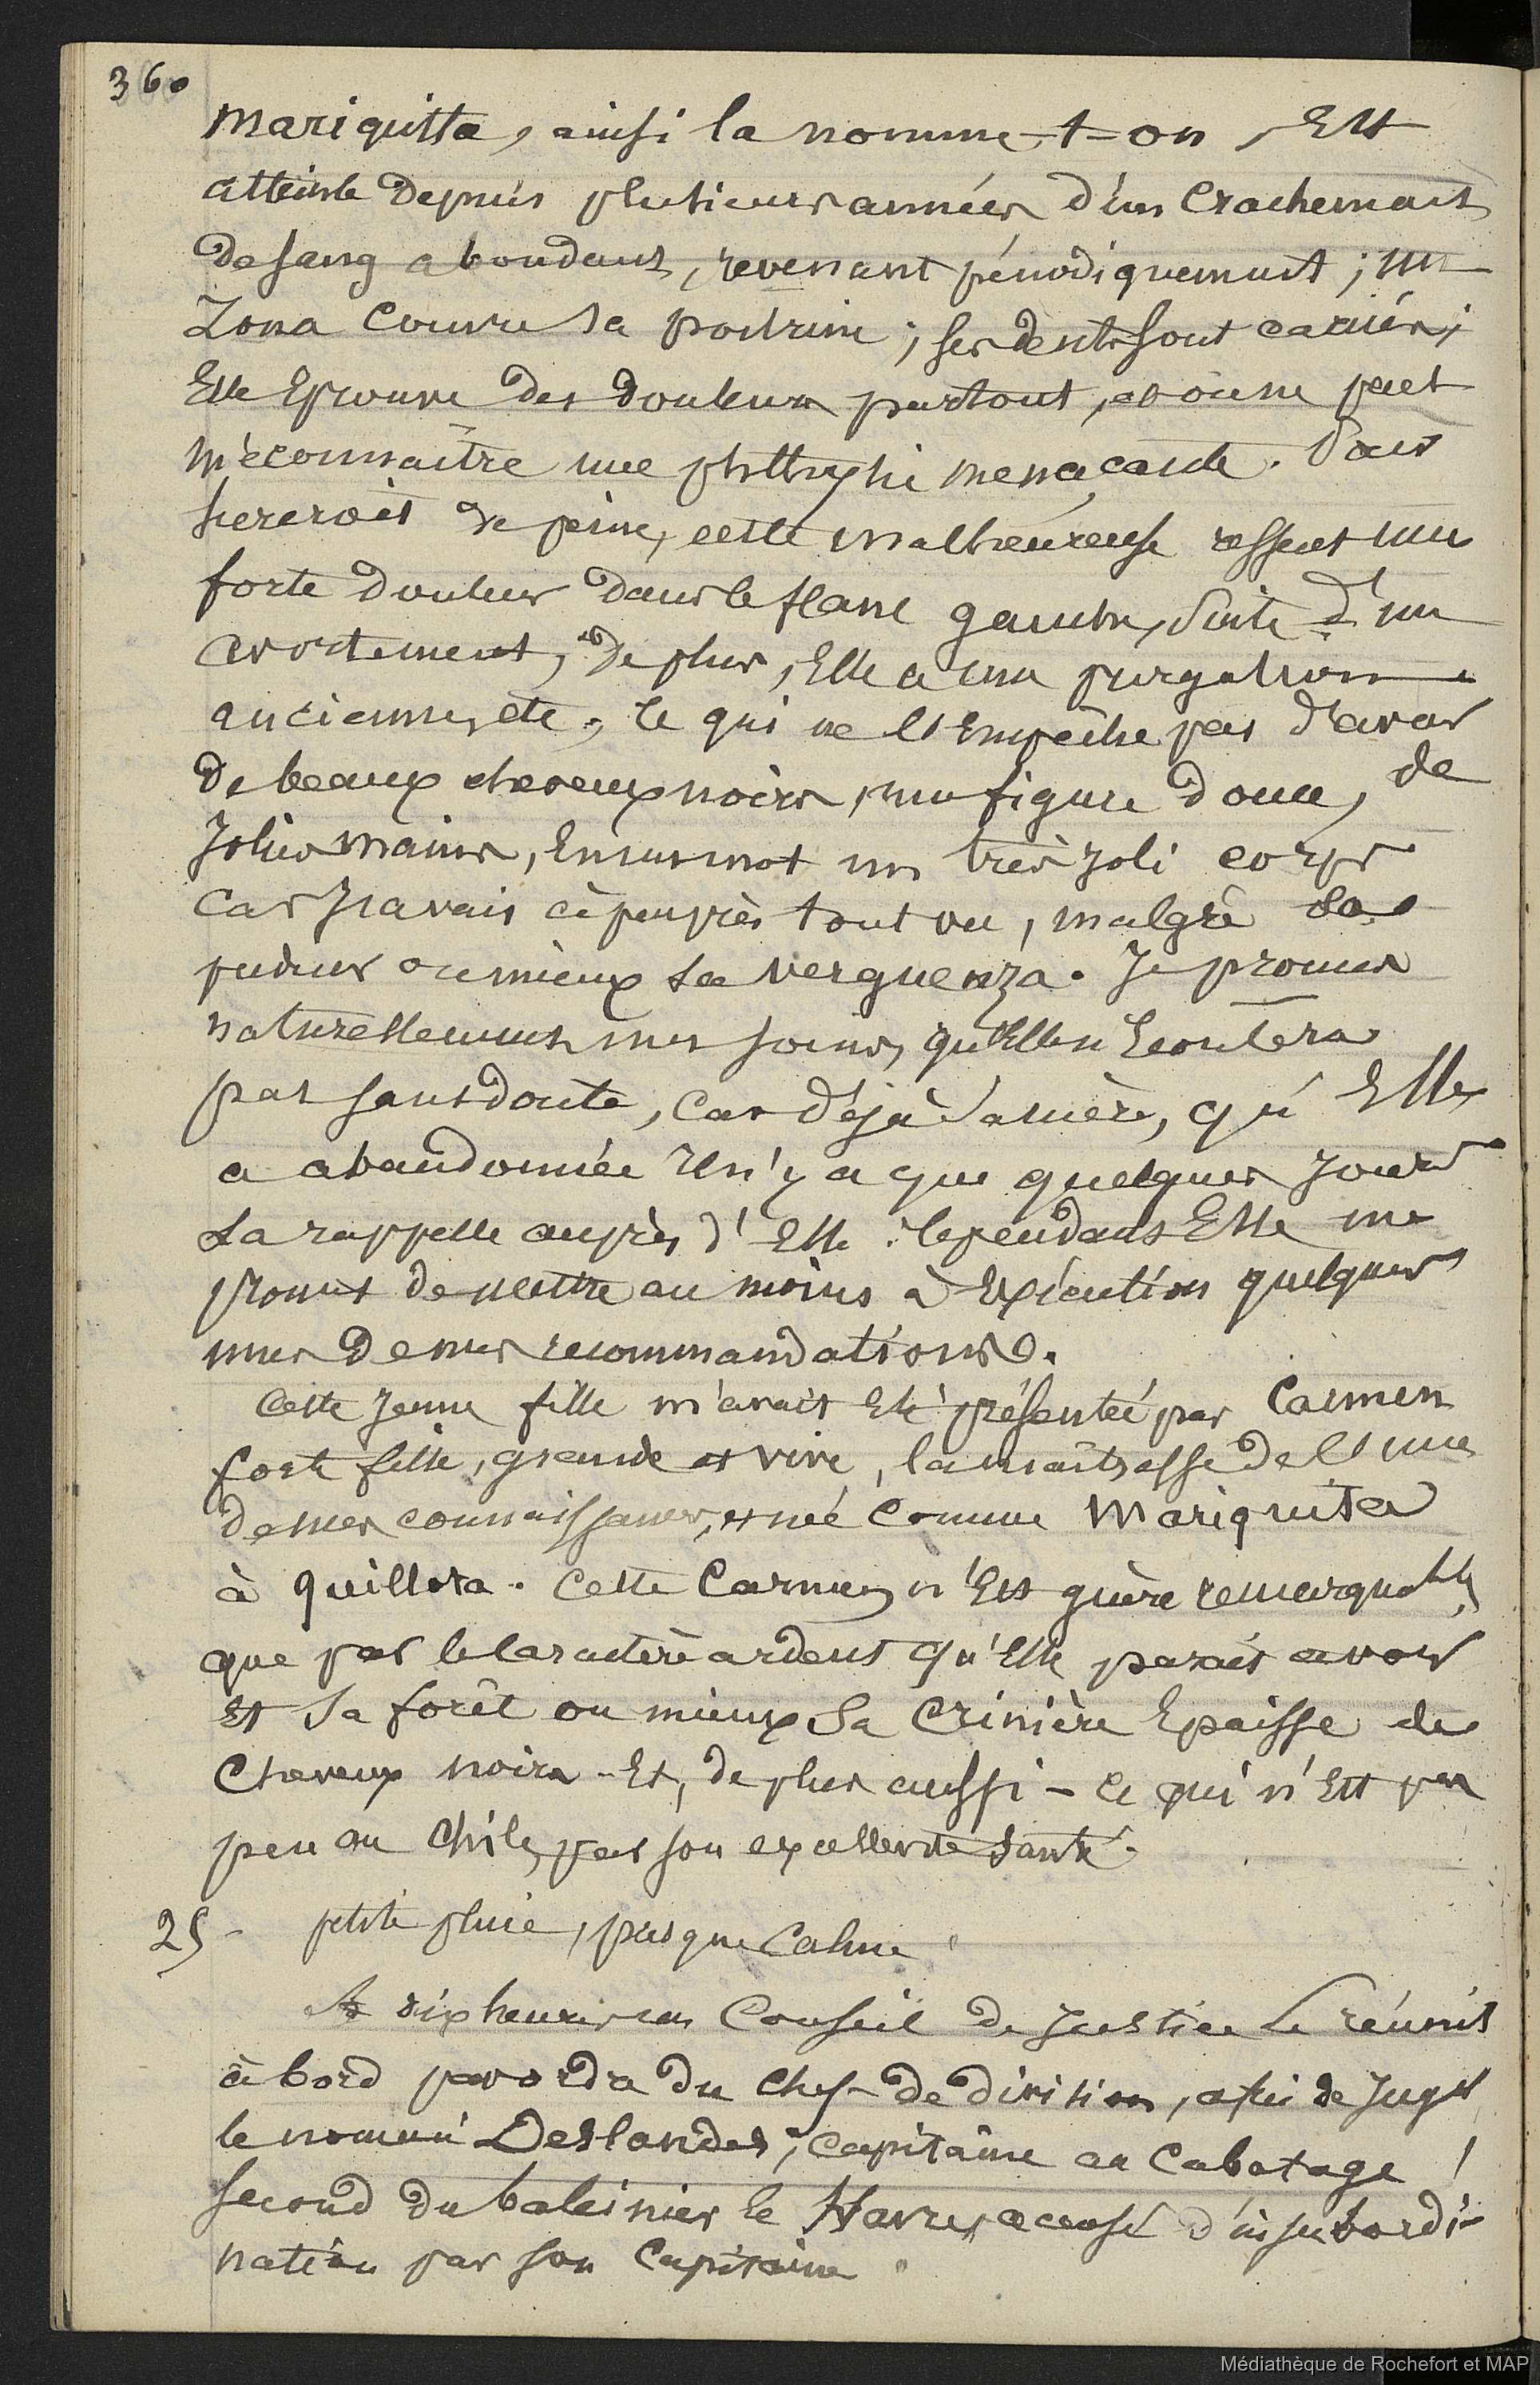 360
Mariquitta, ainsi la nomme-t-on, Est
atteinte depuis plusieurs années d'un Crachement
de sang abondant, revenant périodiquement ; un
Zona Couvre sa poitrine ; ses dents sont cariées ;
Elle Eprouve des douleurs partout, et on ne peut
méconnaitre une phttysie menaçante. Pour
de peine, cette malheureuse ressent une
forte douleur dans le flanc gauche, suite d'un
avortement, et de plus, Elle a une purgation
ancienne, etc, Ce qui ne l'Empêche pas d'avoir
de beaux cheveux noirs, une figure douce, de
Jolies mains, En un mot un très joli corps
Car j'avais à peu près tout vu, malgré sa
pudeur ou mieux sa verguenza. Je promis
naturellement mes soins, qu'Elle n'Ecoutera
pas sans doute, Car déjà sa mère, qu'Elle
a abandonnée Il n'y a que quelques jours
La rappelle auprès d'Elle. Cependant Elle me
promit de mettre au moins à Exécution quelques
unes de mes recommandations.
Cette Jeune fille m'avait Eté présentée par Carmen
forte fille, grande et vive, la maîtresse de l'une
de mes connaissances, et née Comme Mariquita
à Quillota. Cette Carmen n'Est guère remarquable
que par le Caractère ardent qu'Elle parait avoir
Et sa forêt ou mieux sa Crinière Epaisse de
Cheveux noirs - Et, de plus aussi - Ce qui n'Est pas
peu au Chili, par son excellente santé.
25 - petite pluie, presque Calme.
A dix heures un Conseil de Justice se réunit
à bord par ordre du Chef de division, afin de juger
le nommé Deslandes, Capitaine au Cabotage,
Second du baleinier le Havre, accusé d'insubordi-
nation par son Capitaine.
Médiathèque de Rochefort et MAP